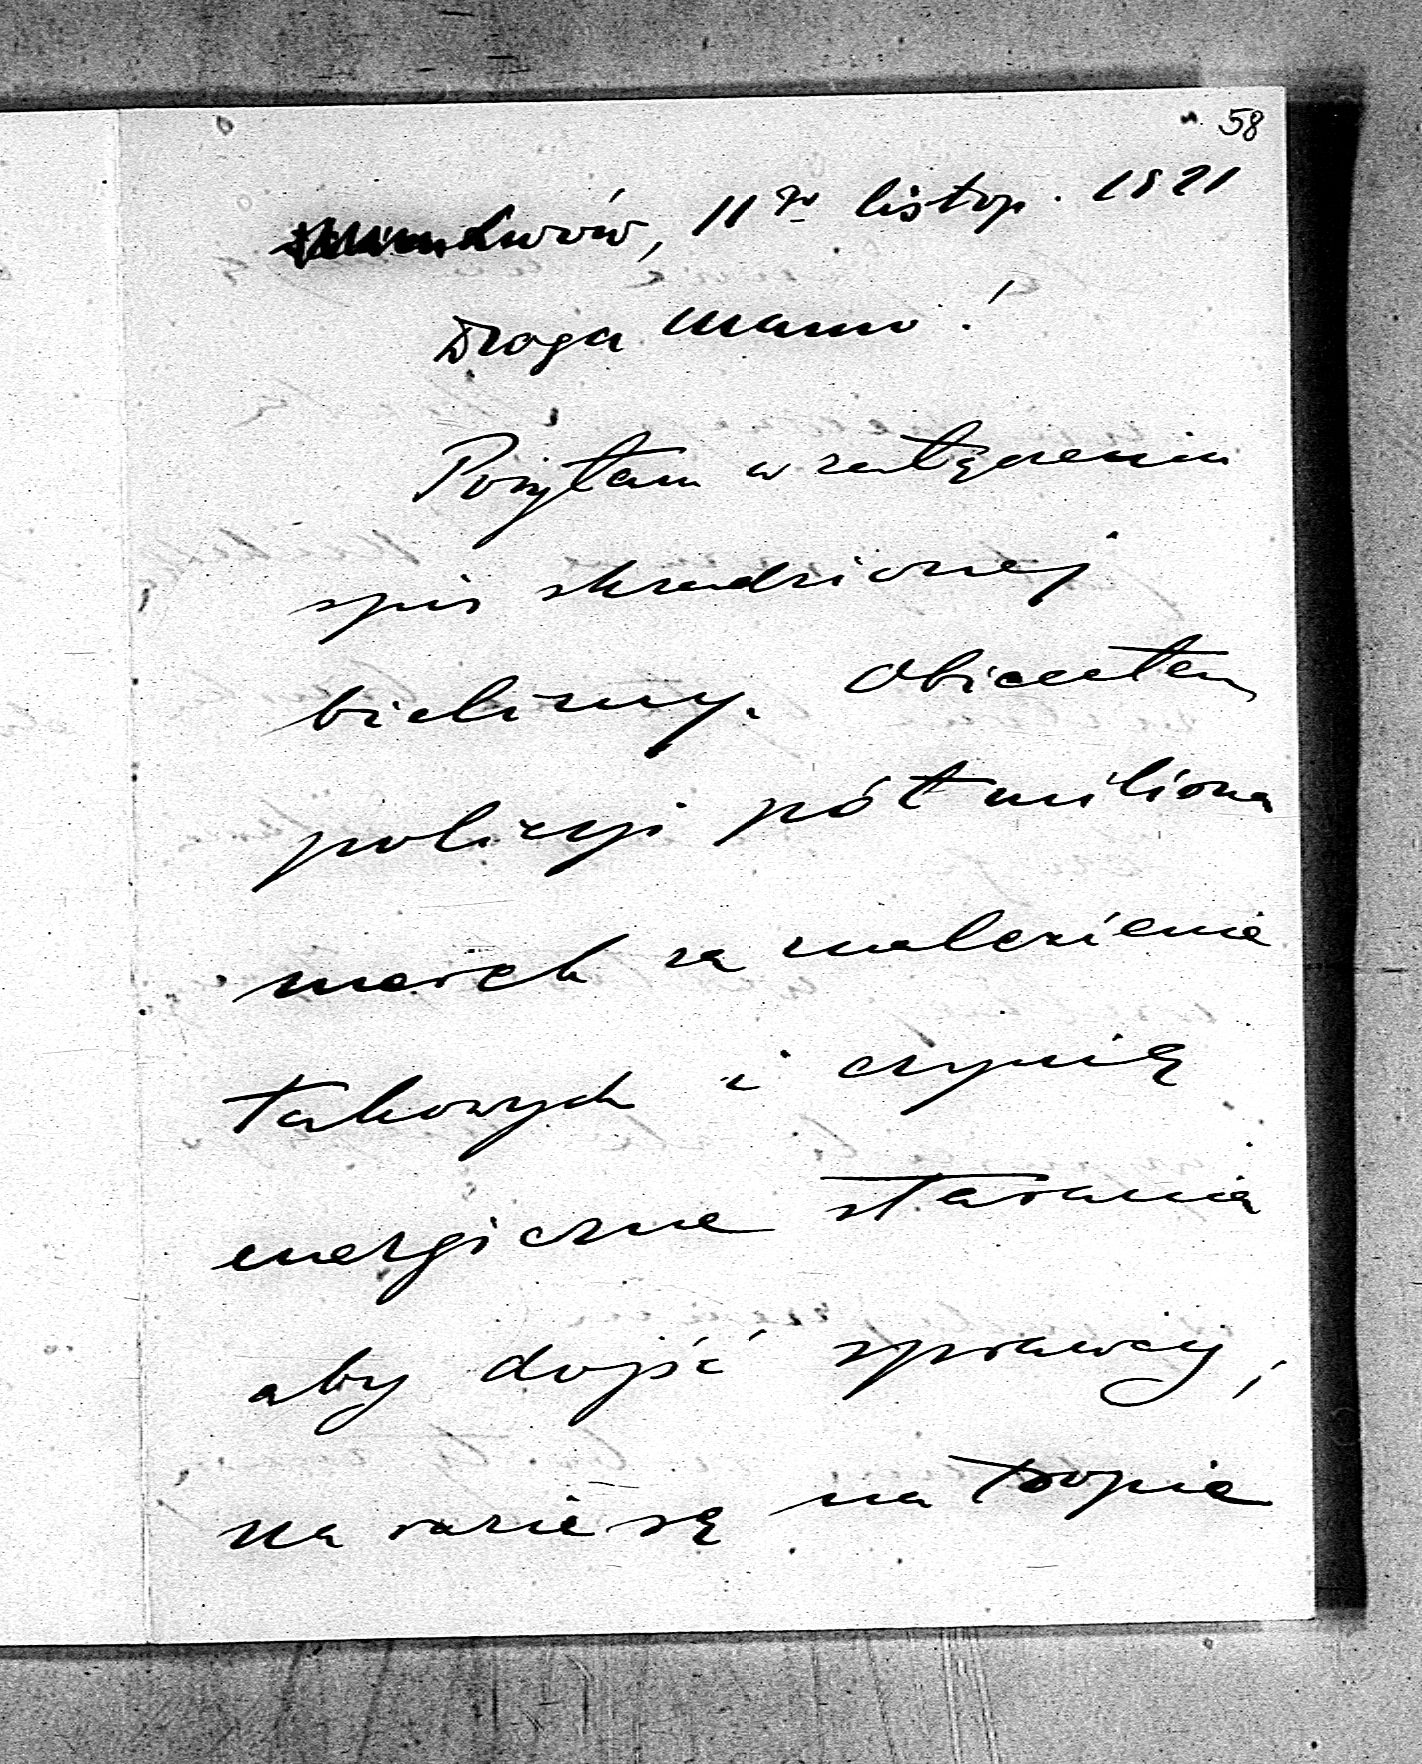 58
Lwów, 11go listop. 1921
Droga Mamo!
Posyłam w załączeniu
spis skradzionej
bielizny. Obiecałem
policyi pół miliona
marek za znalezienie
takowych i czynię
energiczne starania
aby dojść sprawcy,
na razie są na tropie